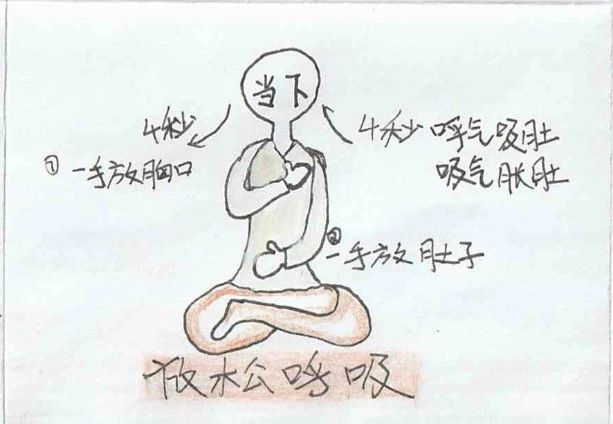 当下
4秒
4秒 呼气吸肚
吸气胀肚
① 一手放胸口
② 一手放肚子
放松呼吸